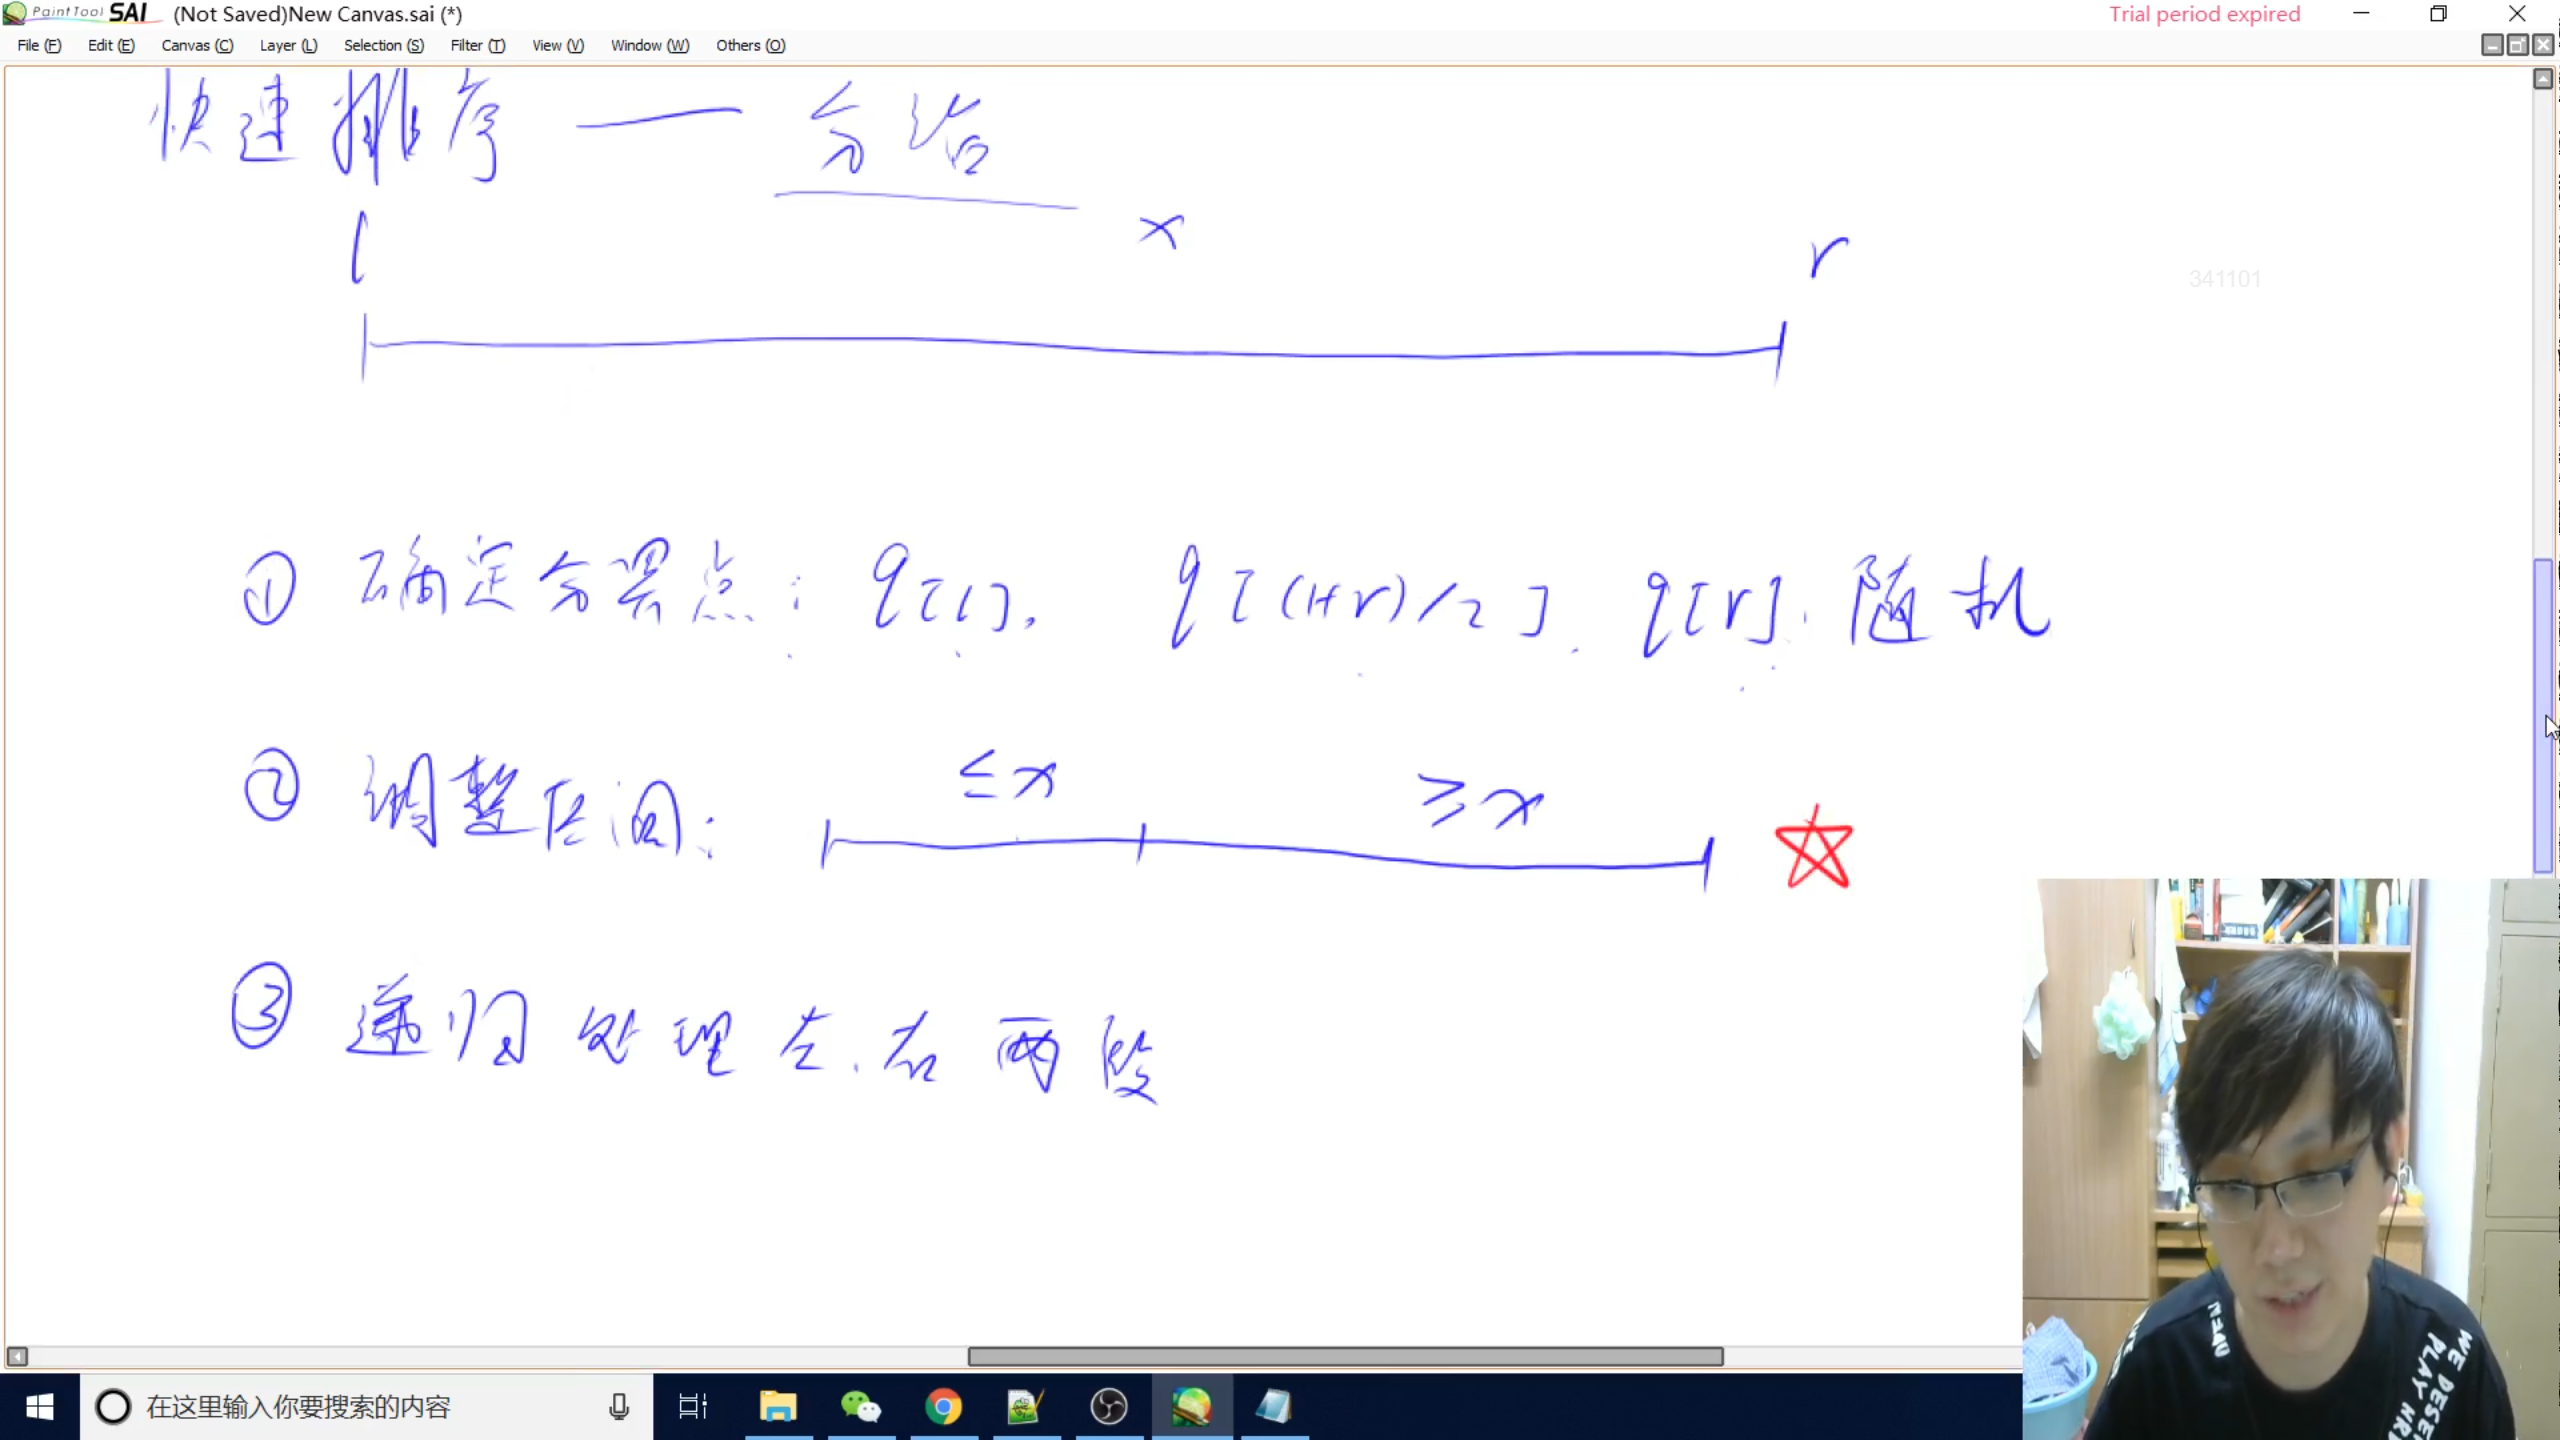 PaintTool SAI (Not Saved)New Canvas.sai (*) Trial period expired
File (F) Edit (E) Canvas (C) Layer (L) Selection (S) Filter (T) View (V) Window (W) Others (O)
快速排序 — 分治
l x r
341101
① 确定分界点: q[l], q[(l+r)/2], q[r], 随机
② 调整区间: ≤x ≥x
③ 递归处理左、右两段
WE DESE
PLAY
在这里输入你要搜索的内容